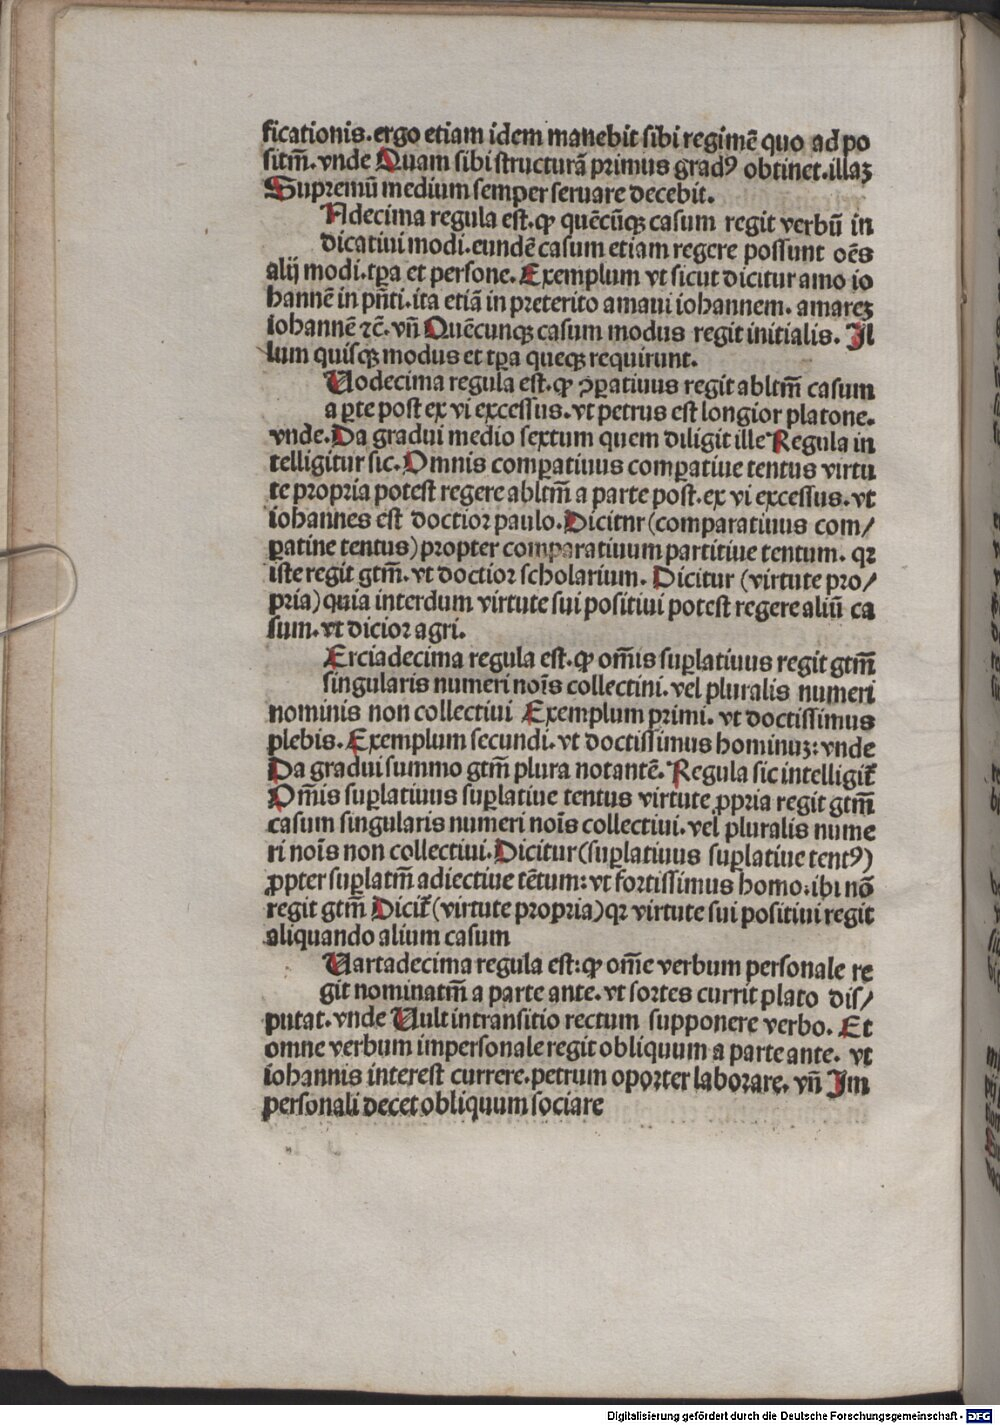 ficationis. ergo etiam idem manebit sibi regimē quo ad po
sitm̄. vnde Quam sibi structurā primus gradꝰ obtinet. illaꝫ
Supremū medium semper seruare decebit.
Ndecima regula est. ꝙ quēcūqꝫ casum regit verbū in
dicatiui modi. eundē casum etiam regere possunt oēs
alij modi. tꝑa et persone. Exemplum vt sicut dicitur amo io
hannē in pn̄ti. ita etiā in preterito amaui iohannem. amareꝫ
iohannē ⁊c̄. vn̄ Quēcunqꝫ casum modus regit initialis. Il
lum quisqꝫ modus et tꝑa queqꝫ requirunt.
Uodecima regula est. ꝙ ꝯꝑatiuus regit abltm̄ casum
a ꝑte post ex vi excessus. vt petrus est longior platone.
vnde. Da gradui medio sextum quem diligit ille Regula in
telligitur sic. Omnis comꝑatiuus comꝑatiue tentus virtu
te propria potest regere abltm̄ a parte post. ex vi excessus. vt
iohannes est doctior paulo. Dicitnr (comparatiuus com/
ꝑatine tentus) propter comparatiuum partitiue tentum. qꝛ
iste regit gtm̄. vt doctior scholarium. Dicitur (virtute pro/
pria) quia interdum virtute sui positiui potest regere aliū ca
sum. vt dicior agri.
Erciadecima regula est. ꝙ om̄is suꝑlatiuus regit gtm̄
singularis numeri noīs collectini. vel pluralis numeri
nominis non collectiui Exemplum primi. vt doctissimus
plebis. Exemplum secundi. vt doctissimus hominuꝫ: vnde
Da gradui summo gtm̄ plura notantē. Regula sic intelligit̄
Om̄is suꝑlatiuus suꝑlatiue tentus virtute ꝓpria regit gtm̄
casum singularis numeri noīs collectiui. vel pluralis nume
ri noīs non collectiui. Dicitur (suꝑlatiuus suꝑlatiue tentꝰ)
ꝓpter suꝑlatm̄ adiectiue tētum: vt fortissimus homo: ibi nō
regit gtm̄ Dicit̄ (virtute propria) qꝛ virtute sui positiui regit
aliquando alium casum
Uartadecima regula est: ꝙ om̄e verbum personale re
git nominatm̄ a parte ante. vt sortes currit plato dis/
putat. vnde Uult intransitio rectum supponere verbo. Et
omne verbum impersonale regit obliquum a parte ante. vt
iohannis interest currere. petrum oporter laborare. vn̄ Im
personali decet obliquum sociare
Digitalisierung gefördert durch die Deutsche Forschungsgemeinschaft - DFG